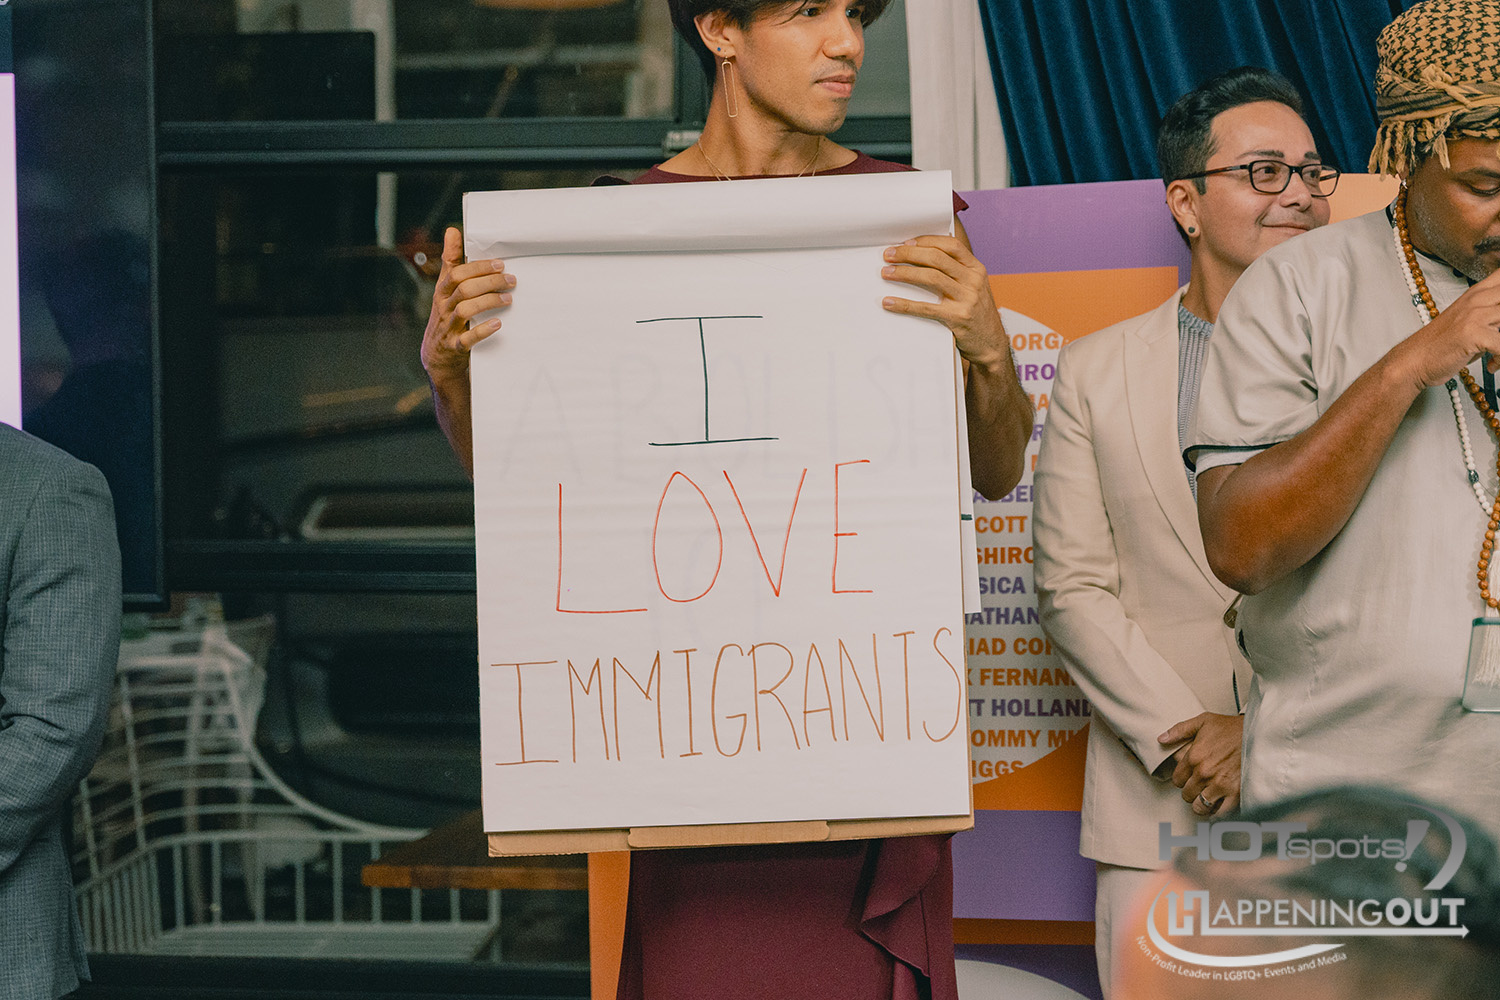 I
LOVE
IMMIGRANTS
ABOLISH
ORGA
IRO
MA
COTT
SHIRO
SICA
ATHAN
IAD COR
FERNAN
TT HOLLAND
OMMY MI
IGGS
HOTspots!
HAPPENINGOUT
Non-Profit Leader in LGBTQ+ Events and Media